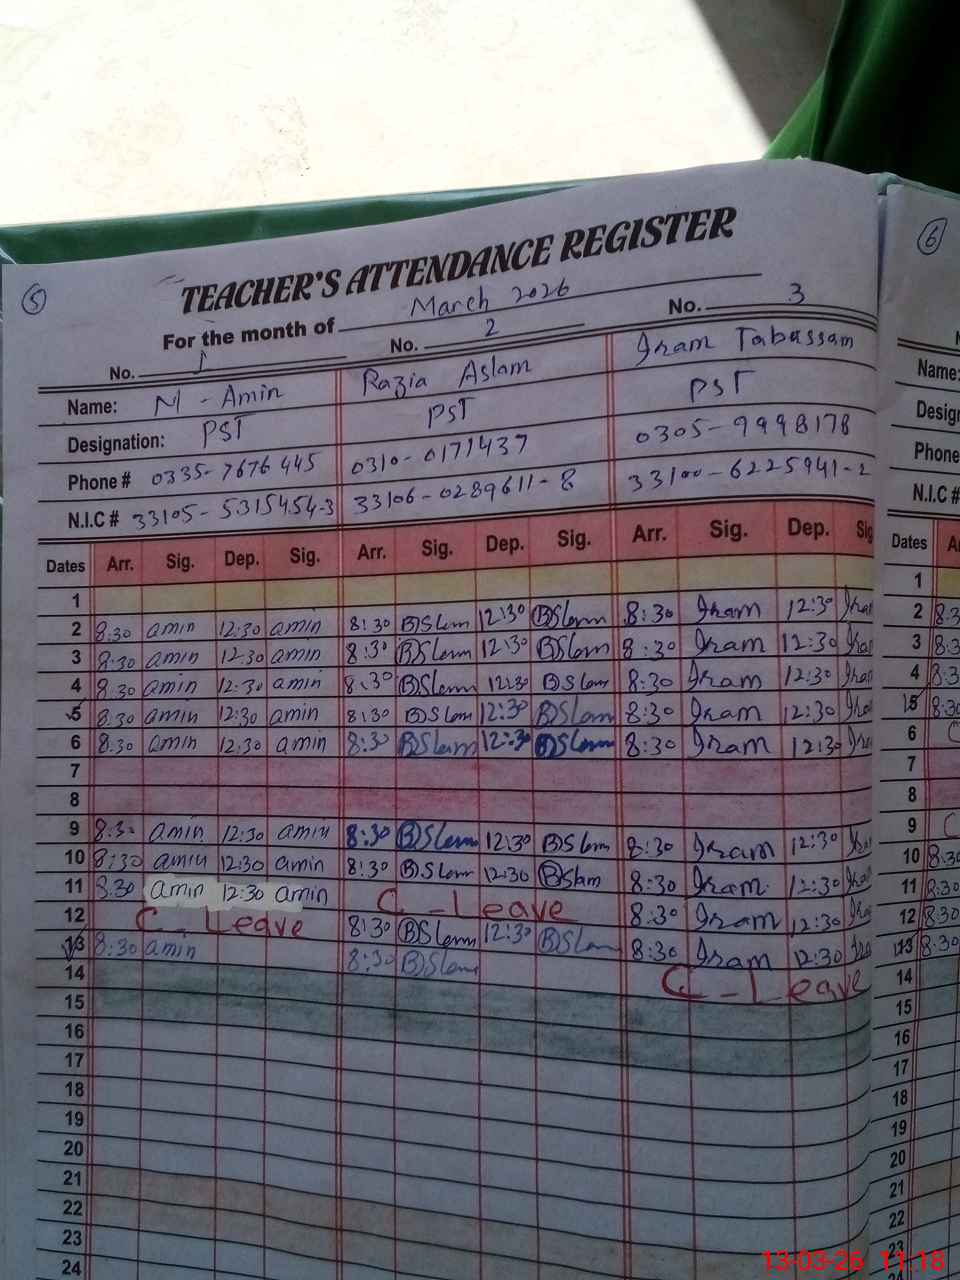 5
TEACHER'S ATTENDANCE REGISTER
6
For the month of March 2026
No. 1 No. 2 No. 3
Name: M - Amin Razia Aslam Iram Tabassam Name:
Designation: PST PST PST
Phone # 0335-7676445 0310-0171437 0305-9998178 Phone
N.I.C # 33105-5315454-3 33106-0289611-8 33100-6225941-2 N.I.C #
Dates Arr. Sig. Dep. Sig. Arr. Sig. Dep. Sig. Arr. Sig. Dep. Sig Dates
1 1
2 8:30 amin 12:30 amin 8:30 BSlam 12:30 BSlam 8:30 Iram 12:30 2
3 8:30 amin 12:30 amin 8:30 BSlam 12:30 BSlam 8:30 Iram 12:30 3
4 8:30 amin 12:30 amin 8:30 BSlam 12:30 BSlam 8:30 Iram 12:30 4
5 8:30 amin 12:30 amin 8:30 BSlam 12:30 BSlam 8:30 Iram 12:30 5
6 8:30 amin 12:30 amin 8:30 BSlam 12:30 BSlam 8:30 Iram 12:30 6
7 7
8 8
9 8:30 amin 12:30 amin 8:30 BSlam 12:30 BSlam 8:30 Iram 12:30 9
10 8:30 amin 12:30 amin 8:30 BSlam 12:30 BSlam 8:30 Iram 12:30 10
11 8:30 amin 12:30 amin C - Leave 8:30 Iram 12:30 11
12 C - Leave 8:30 BSlam 12:30 BSlam 8:30 Iram 12:30 12
13 8:30 amin 8:30 BSlam C - Leave 13 8:30
14 14
15 15
16 16
17 17
18 18
19 19
20 20
21 21
22 22
23 23
24
13-03-26 11:18